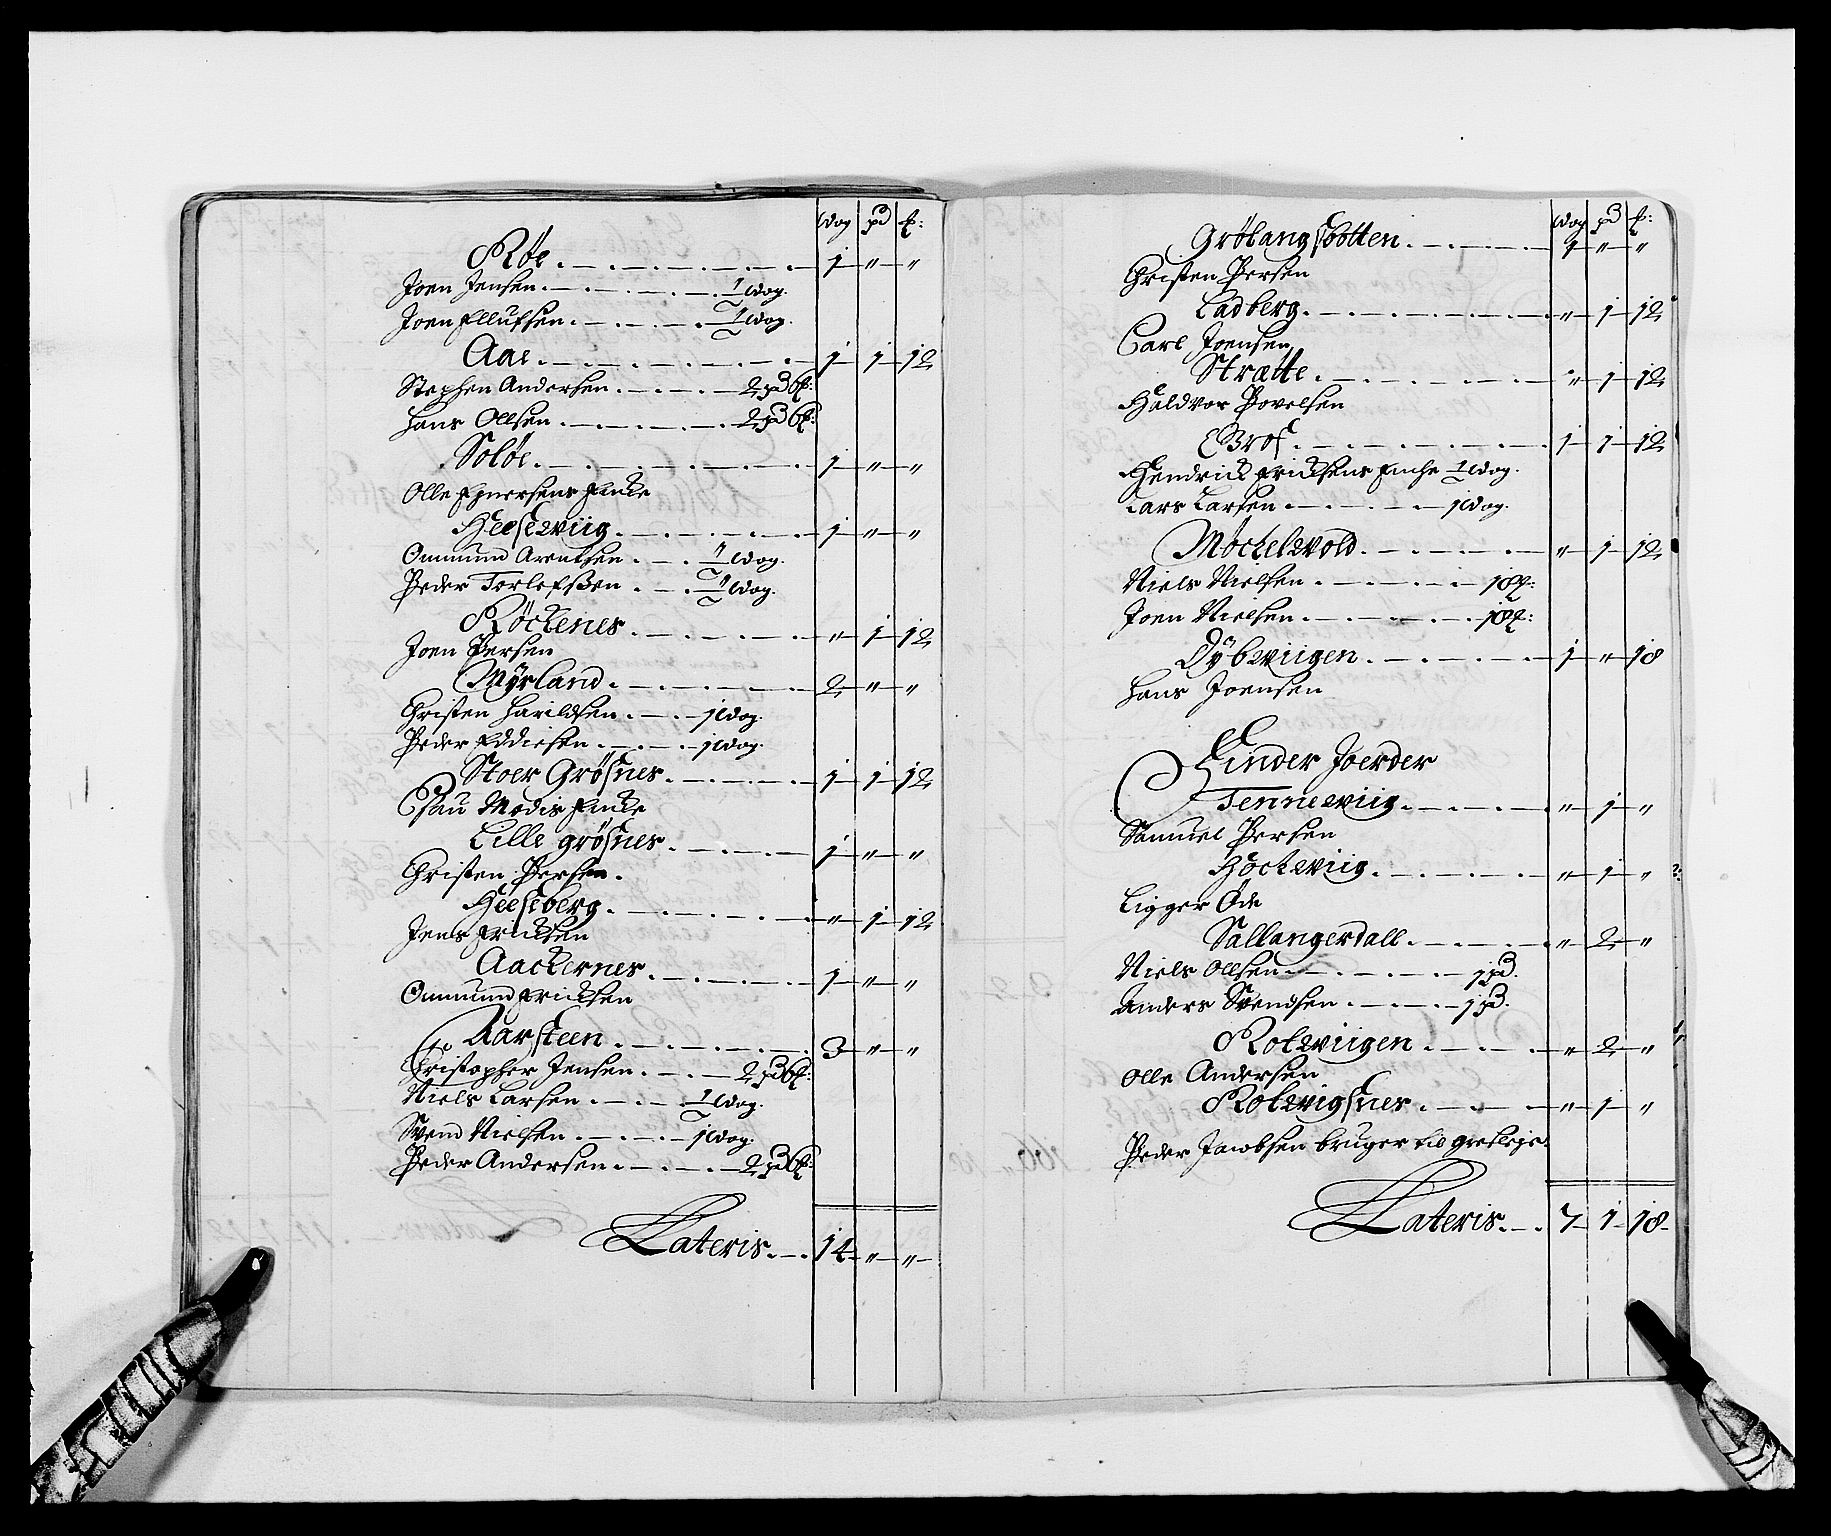 Wog pd ℔:
Røe . — . — . — 1 — " — "
Joen Jensen . — . — . ½ Wog.
Joen Ellufsen . — . — . ½ Wog.
Aae . — . — . — 1 — 1 — 12
Stephen Andersen . — . — 2 pd 6 ℔:
Hans Ollsen . — . — . — 2 pd 6 ℔:
Soløe . — . — . — 1 — " — "
Olle Enersens Encke
Heeseviig . — . — . — 1 — " — "
Ommund Arentsen . — . ½ Wog.
Peder Torlefsen . — . ½ Wog.
Röckenes . — . — . — " — 1 — 12
Joen Persen
Mÿrland . — . — . — 2 — " — "
Christen Harildsen . — . 1 Wog.
Peder Eddiesen . — . — 1 Wog.
Stoer Grøsnes . — . — . — 1 — 1 — 12
Esau Modis Encke
Lille grøsnes . — . — . — 1 — " — "
Christen Persen .
Heeseberg . — . — . — " — 1 — 12
Jens Ericksen
Aackernes . — . — . — 1 — " — "
Ommund Ericksen
Aarsteen . — . — . — 3 — " — "
Christopher Jensen . — . 2 pd 6 ℔:
Niels Larsen . — . — ½ Wog.
Svend Nielsen . — . — 1 Wog.
Peder Andersen . — . — 2 pd 6 ℔:
Lateris . — . 14 — " — "
Wog pd ℔:
Grølangsbotten . — . — 1 — " — "
Christen Persen
Ladberg . — . — . — " — 1 — 12
Carl Joensen
Strætte . — . — . — " — 1 — 12
Haldvor Povelsen
Broe . — . — . — 1 — 1 — 12
Hendrick Ericksens Enche ½ Wog.
Lars Larsen . — . — . 1 Wog.
Mochelvold . — . — . — " — 1 — 12
Niels Nielsen . — . — . 18 ℔:
Joen Nielsen . — . — . 18 ℔:
Dÿbviigen . — . — . — 1 — " — 18
Hans Joensen
Finder Joerder
Tenneviig . — . — . — " — 1 — "
Samuel Persen
Hockeviig . — . — . — " — 1 — "
Ligger Øde
Sallangerdall . — . — . — " — 2 — "
Niels Ollsen . — . — . 1 pd.
Anders Svendsen . — . — 1 pd.
Rotviigen . — . — . — " — 2 — "
Olle Andersen
Rotevigsnes . — . — . — " — 1 — "
Peder Jacobsen bruger til gresleje.
Lateris . — . 7 — 1 — 18